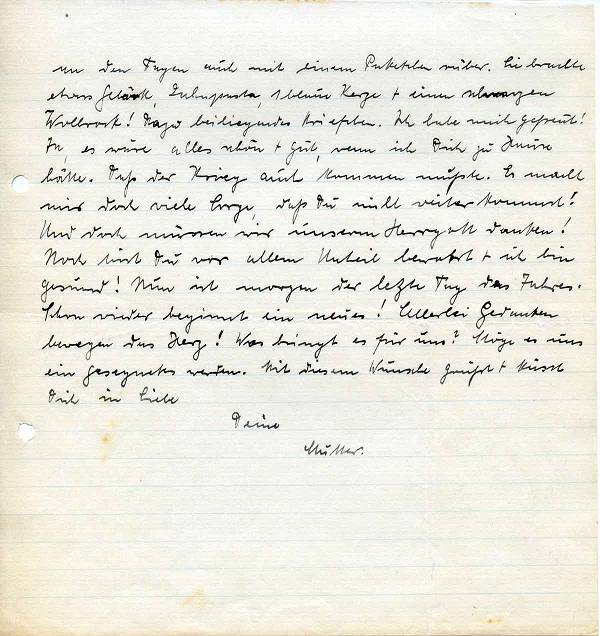 an den Tagen auch mit einem Paketchen rüber. Sie brachte
etwas Gebäck, Zahnpasta, 1 blaue Kerze + einen schwarzen
Wollrock! Dazu beiliegendes Briefchen. Ich habe mich gefreut!
Ja, es wäre alles schön + gut, wenn ich Dich zu Hause
hätte. Daß der Krieg auch kommen mußte. Es macht
mir doch viele Sorge, daß Du nicht weiter kommst!
Und doch müssen wir unserm Herrgott danken!
Noch bist Du vor allem Unheil bewahrt + ich bin
gesund! Nun ist morgen der letzte Tag des Jahres.
Schon wieder beginnt ein neues! Allerlei Gedanken
bewegen das Herz! Was bringt es für uns? Möge es uns
ein gesegnetes werden. Mit diesem Wunsche grüßt + küsst
Dich in Liebe
Deine
Mutter.